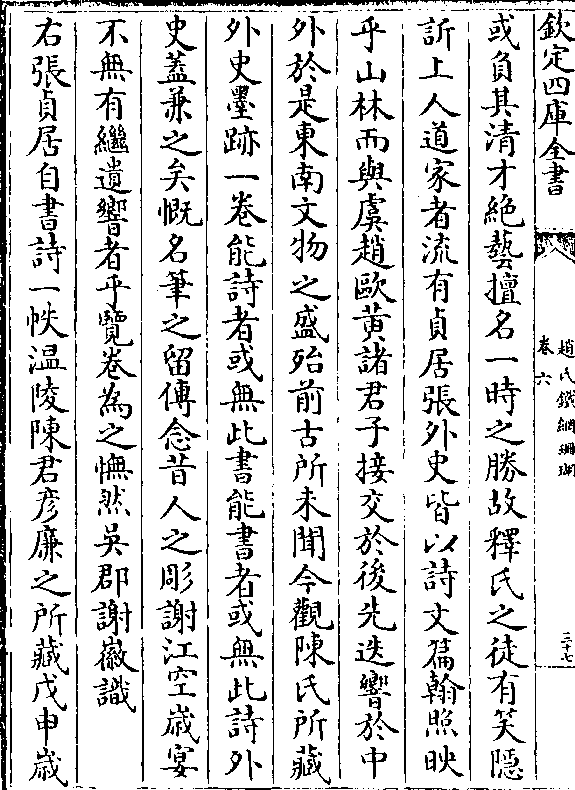 欽定四庫全書
趙氏鐵網珊瑚
卷六
三十七
或負其清才絶藝擅名一時之勝故釋氏之徒有笑隠
訢上人道家者流有貞居張外史皆以詩文篇翰照映
乎山林而與虞趙歐黄諸君子接交於後先迭響於中
外於是東南文物之盛殆前古所未聞今觀陳氏所藏
外史墨跡一卷能詩者或無此書能書者或無此詩外
史葢兼之矣慨名筆之留傳念昔人之彫謝江空嵗宴
不無有繼遺響者乎覽卷為之憮然吳郡謝徽識
右張貞居自書詩一帙温陵陳君彦廉之所藏戊申嵗